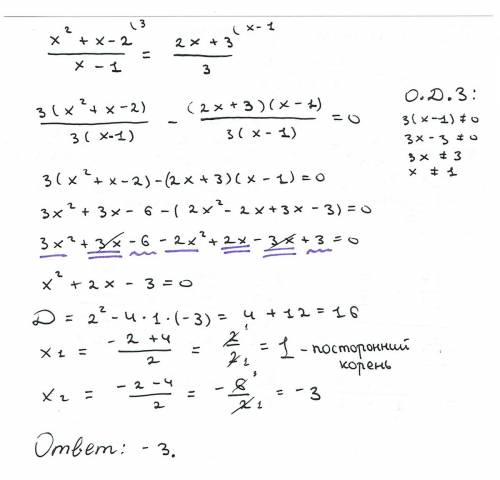 (x² + x - 2)/(x - 1) ⁽³ = (2x + 3)/3 ⁽ˣ⁻¹
3(x² + x - 2)/3(x-1) - (2x + 3)(x - 1)/3(x - 1) = 0
О.Д.З:
3(x-1) ≠ 0
3x - 3 ≠ 0
3x ≠ 3
x ≠ 1
3(x² + x - 2) - (2x + 3)(x - 1) = 0
3x² + 3x - 6 - (2x² - 2x + 3x - 3) = 0
3x² + 3x - 6 - 2x² + 2x - 3x + 3 = 0
x² + 2x - 3 = 0
D = 2² - 4 · 1 · (-3) = 4 + 12 = 16
x1 = (-2 + 4)/2 = 2¹/2₁ = 1 - посторонний корень
x2 = (-2 - 4)/2 = -6³/2₁ = -3
Ответ: -3.